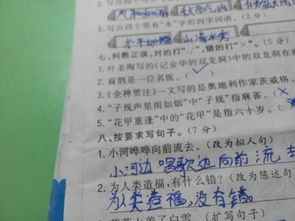 2. 写出四个带有“水”字的四字词语。(2分)
七、判断正误，对的打“√”，错的打“×”。(5分)
1. 叶圣陶写的《记金华的双龙洞》中的双龙洞在
2. 扁鹊是一位名医。
3. 《全神贯注》一文写的是奥地利作家茨威格。
4. “子规声里雨如烟”中“子规”指麻雀。
5. “花甲重逢”中的“花甲”是指六十岁。
八、按要求写句子。(7分)
1. 小河哗哗向前流去。(改为拟人句)
小河边唱歌边向前流去
2. 为人类造福，有什么错？(改为陈述句
为人类造福，没有错